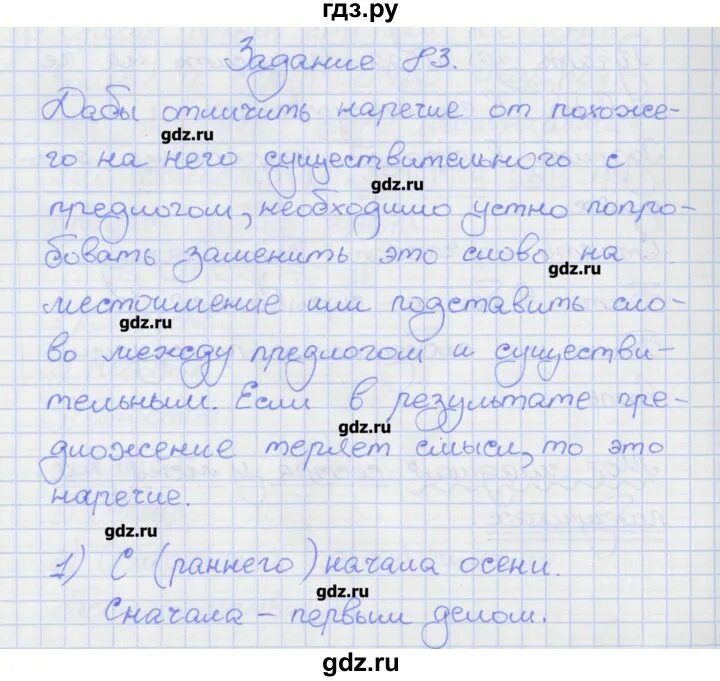 гдз.ру
Задание 83.
Дабы отличить наречие от похоже-
gdz.ru
го на него существительного с
gdz.ru
предлогом, необходимо устно попро-
бовать заменить это слово на
gdz.ru
местоимение или подставить сло-
gdz.ru
во между предлогом и существи-
тельным. Если в результате пре-
gdz.ru
дложение теряет смысл, то это
наречие.
gdz.ru
1) С (раннего) начала осени.
gdz.ru
Сначала – первым делом.
gdz.ru